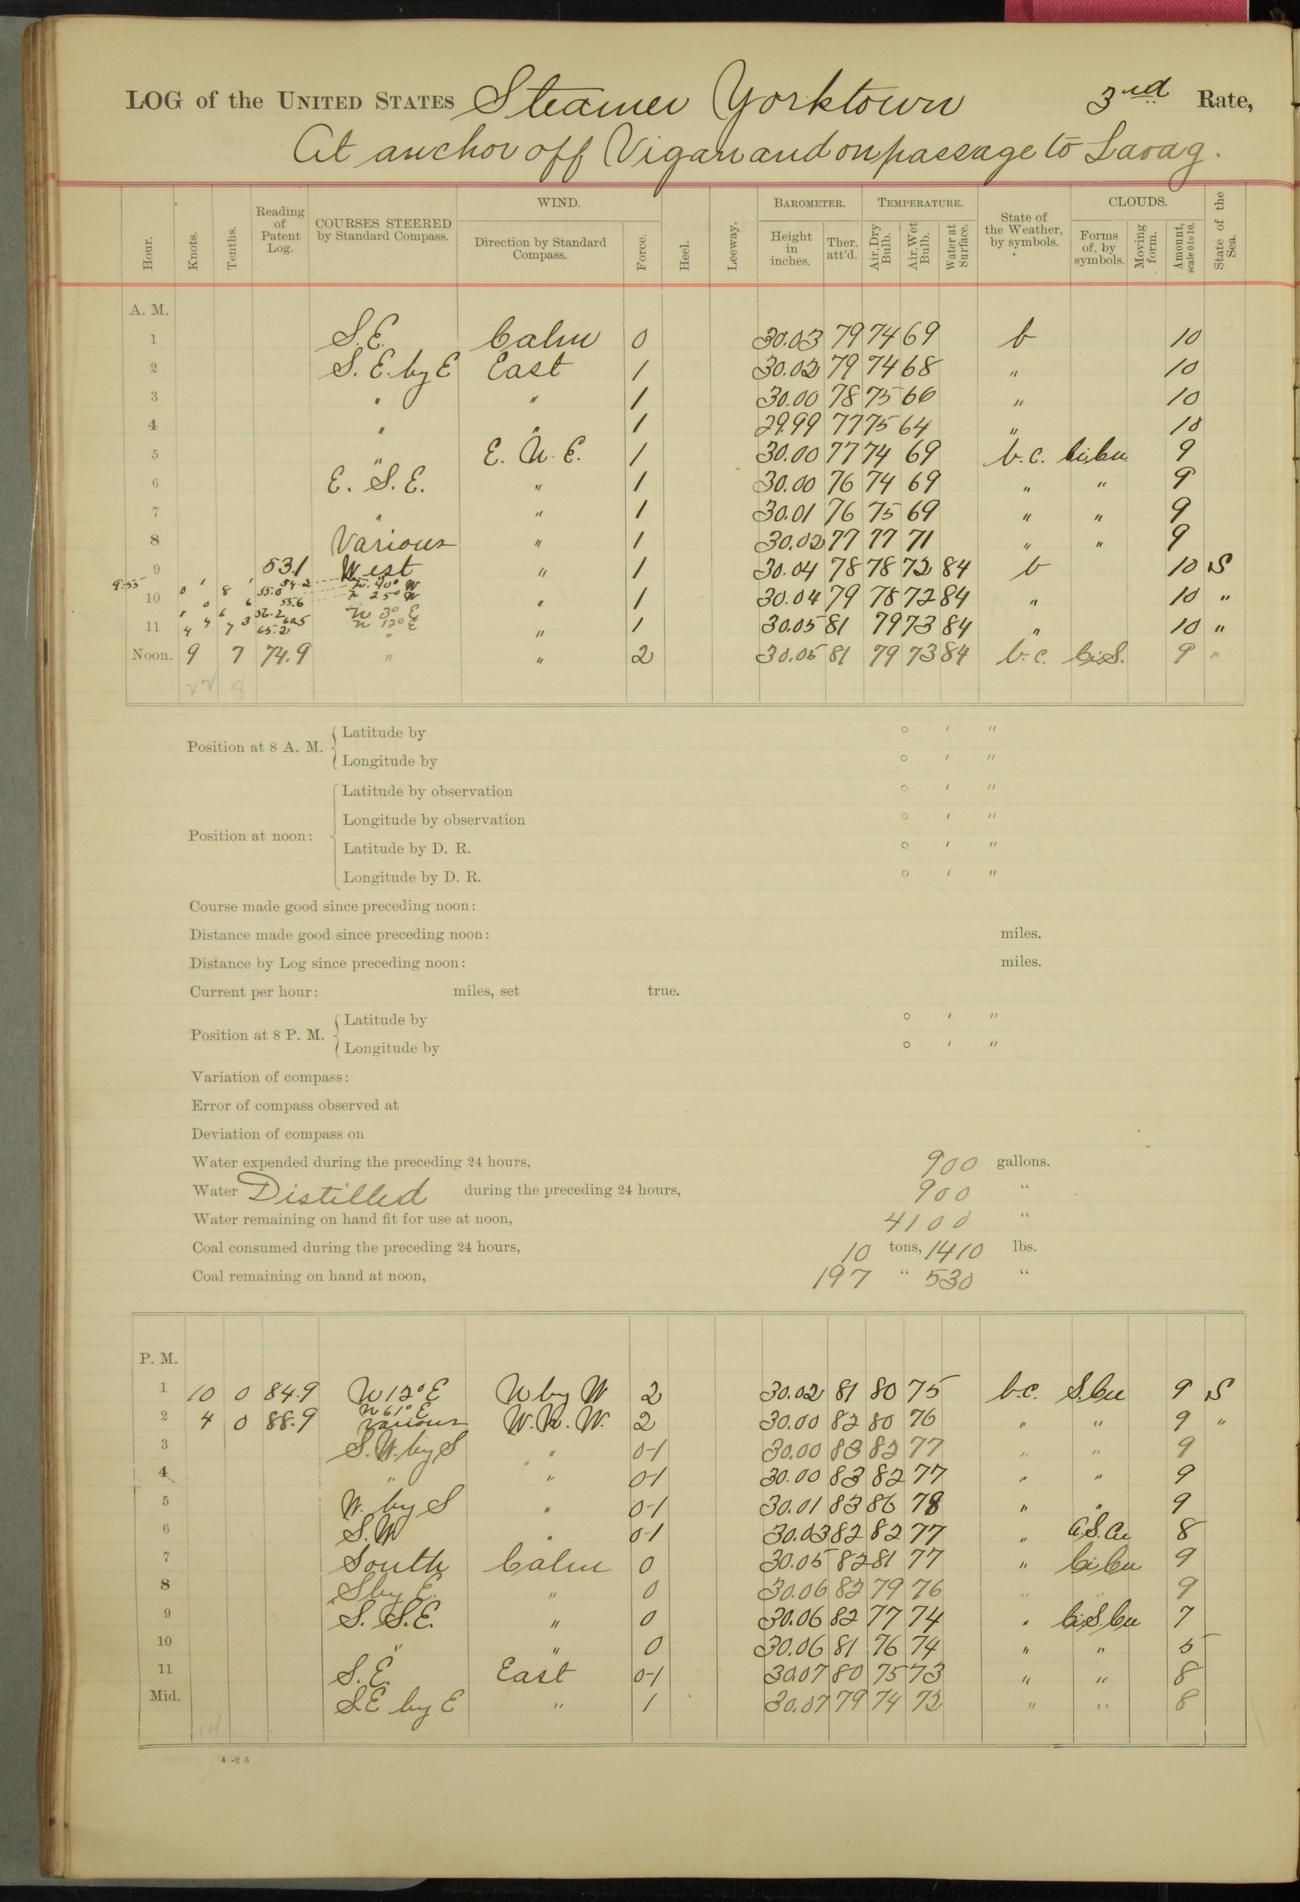 LOG of the UNITED STATES Steamer Yorktown 3rd Rate,
At anchor off Vigan and on passage to Laoag.
Hour. Knots. Tenths. Reading of Patent Log. COURSES STEERED by Standard Compass. WIND. Direction by Standard Compass. Force. Heel. Leeway. BAROMETER. Height in inches. Ther. att'd. TEMPERATURE. Air, Dry Bulb. Air, Wet Bulb. Water at Surface. State of the Weather, by symbols. CLOUDS. Forms of, by symbols. Moving form. Amount, scale 0 to 10. State of the Sea.
A. M.
1 S.E. Calm 0 30.03 79 74 69 b 10
2 S. E. by E East 1 30.02 79 74 68 " 10
3 " " 1 30.00 78 75 66 " 10
4 " " 1 29.99 77 75 64 " 10
5 " E. N. E. 1 30.00 77 74 69 b.c. Ci.Cu 9
6 E. S. E. " 1 30.00 76 74 69 " " 9
7 " " 1 30.01 76 75 69 " " 9
8 Various " 1 30.02 77 77 71 " " 9
9 53.1 West " 1 30.04 78 78 72 84 b 10 S
9.55 0 8 55.0 54.2 N. 40° W
10 0 6 55.6 N 25° W " 1 30.04 79 78 72 84 " 10 "
0 6 56.2 N 3° E
11 4 7 65.2 N 12° E " 1 30.05 81 79 73 84 " 10 "
Noon. 9 7 74.9 " " 2 30.05 81 79 73 84 b.c. Ci.S. 9 "
Position at 8 A. M. Latitude by ° ′ ″
Longitude by ° ′ ″
Latitude by observation ° ′ ″
Longitude by observation ° ′ ″
Position at noon:
Latitude by D. R. ° ′ ″
Longitude by D. R. ° ′ ″
Course made good since preceding noon:
Distance made good since preceding noon: miles.
Distance by Log since preceding noon: miles.
Current per hour: miles, set true.
Position at 8 P. M. Latitude by ° ′ ″
Longitude by ° ′ ″
Variation of compass:
Error of compass observed at
Deviation of compass on
Water expended during the preceding 24 hours, 900 gallons.
Water Distilled during the preceding 24 hours, 900 "
Water remaining on hand fit for use at noon, 4100 "
Coal consumed during the preceding 24 hours, 10 tons, 1410 lbs.
Coal remaining on hand at noon, 197 " 530 "
P. M.
1 10 0 84.9 N 12° E N by W 2 30.02 81 80 75 b.c. S.Cu 9 S
N 61° E
2 4 0 88.9 Various W. N. W. 2 30.00 82 80 76 " " 9 "
3 S.W. by S " 0-1 30.00 83 82 77 " " 9
4 " " 0-1 30.00 83 82 77 " " 9
5 W. by S " 0-1 30.01 83 86 78 " " 9
6 S.W " 0-1 30.03 82 82 77 " Ci.S.Cu 8
7 South Calm 0 30.05 82 81 77 " Ci.Cu 9
8 S by E. " 0 30.06 82 79 76 " " 9
9 S. S.E. " 0 30.06 82 77 74 " Ci.S.Cu 7
10 " " 0 30.06 81 76 74 " " 5
11 S.E. East 0-1 30.07 80 75 73 " " 8
Mid. S.E by E " 1 30.07 79 74 72 " " 8
14
4-25